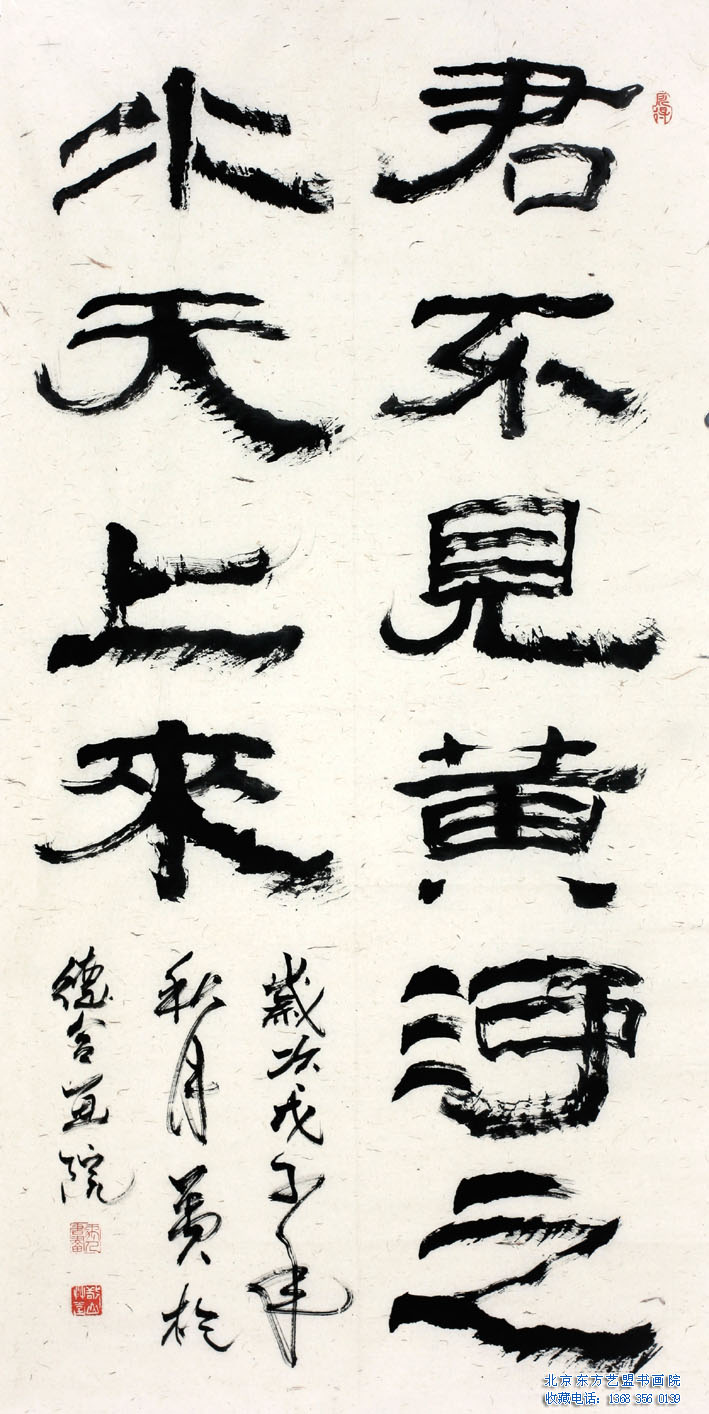 君不見黄河之
水天上來
歲次戊子年
秋月於
德合画院
北京东方艺盟书画院
收藏电话：1368 356 0139